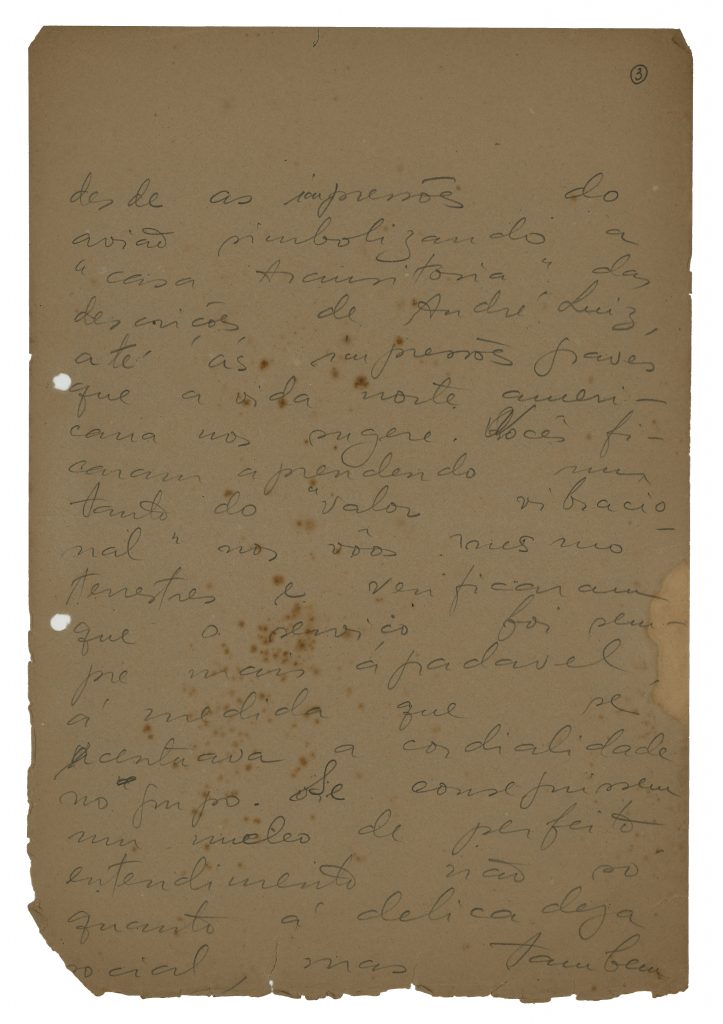 3
desde as impressões do
avião simbolizando a
"casa transitoria" das
descrições de André Luiz,
até ás impressões graves
que a vida norte ameri-
cana nos sugere. Vocês fi-
caram aprendendo um
tanto do "valor vibracio-
nal" nos vôos mesmo
terrestres e verificaram
que o serviço foi sem-
pre mais agradavel
á medida que se
acentuava a cordialidade
no grupo. Se conseguissem
um nucleo de perfeito
entendimento não só
quanto á delicadeza
social, mas tambem